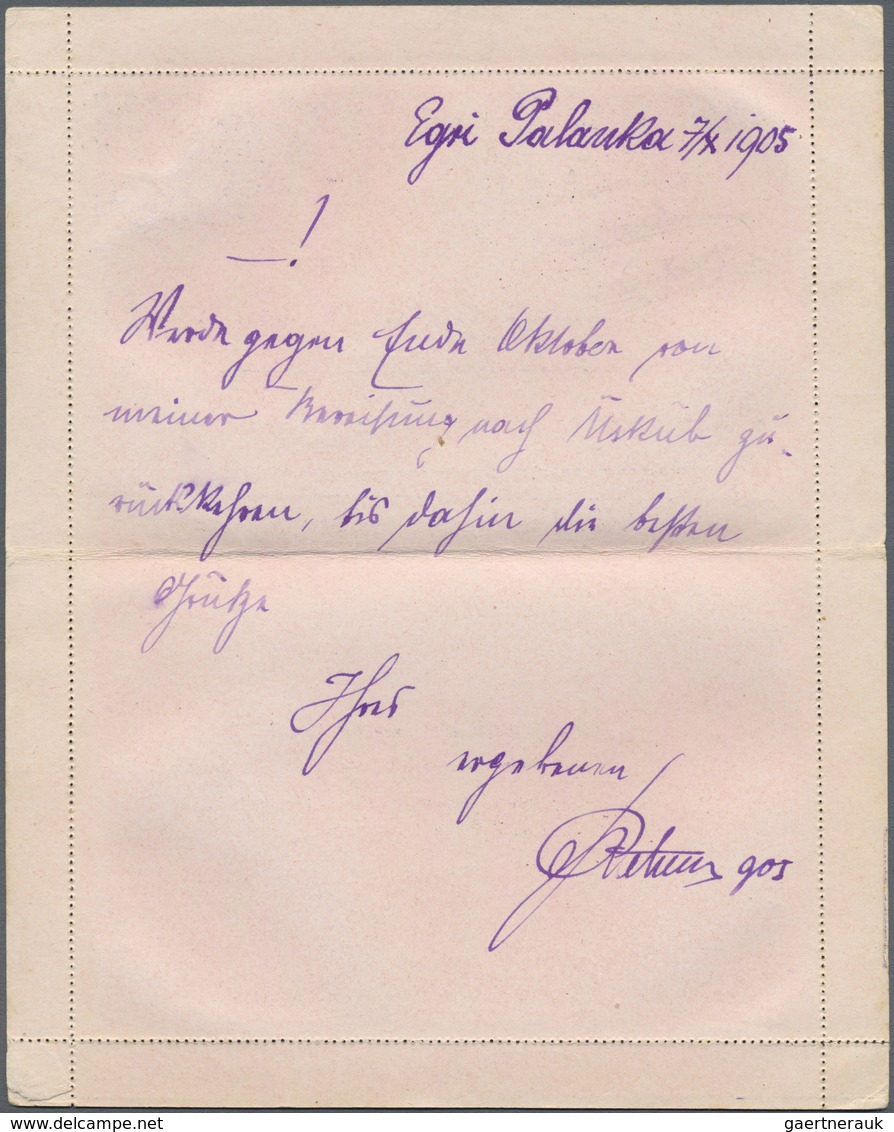 Egri Palanka 7/X 1905
—!
Werde gegen Ende Oktober von
meiner Bereisung nach Üsküb zu-
rückkehren, bis dahin die besten
Grüße
Ihres
ergebenen
905
delcampe.net
gaertnerauk